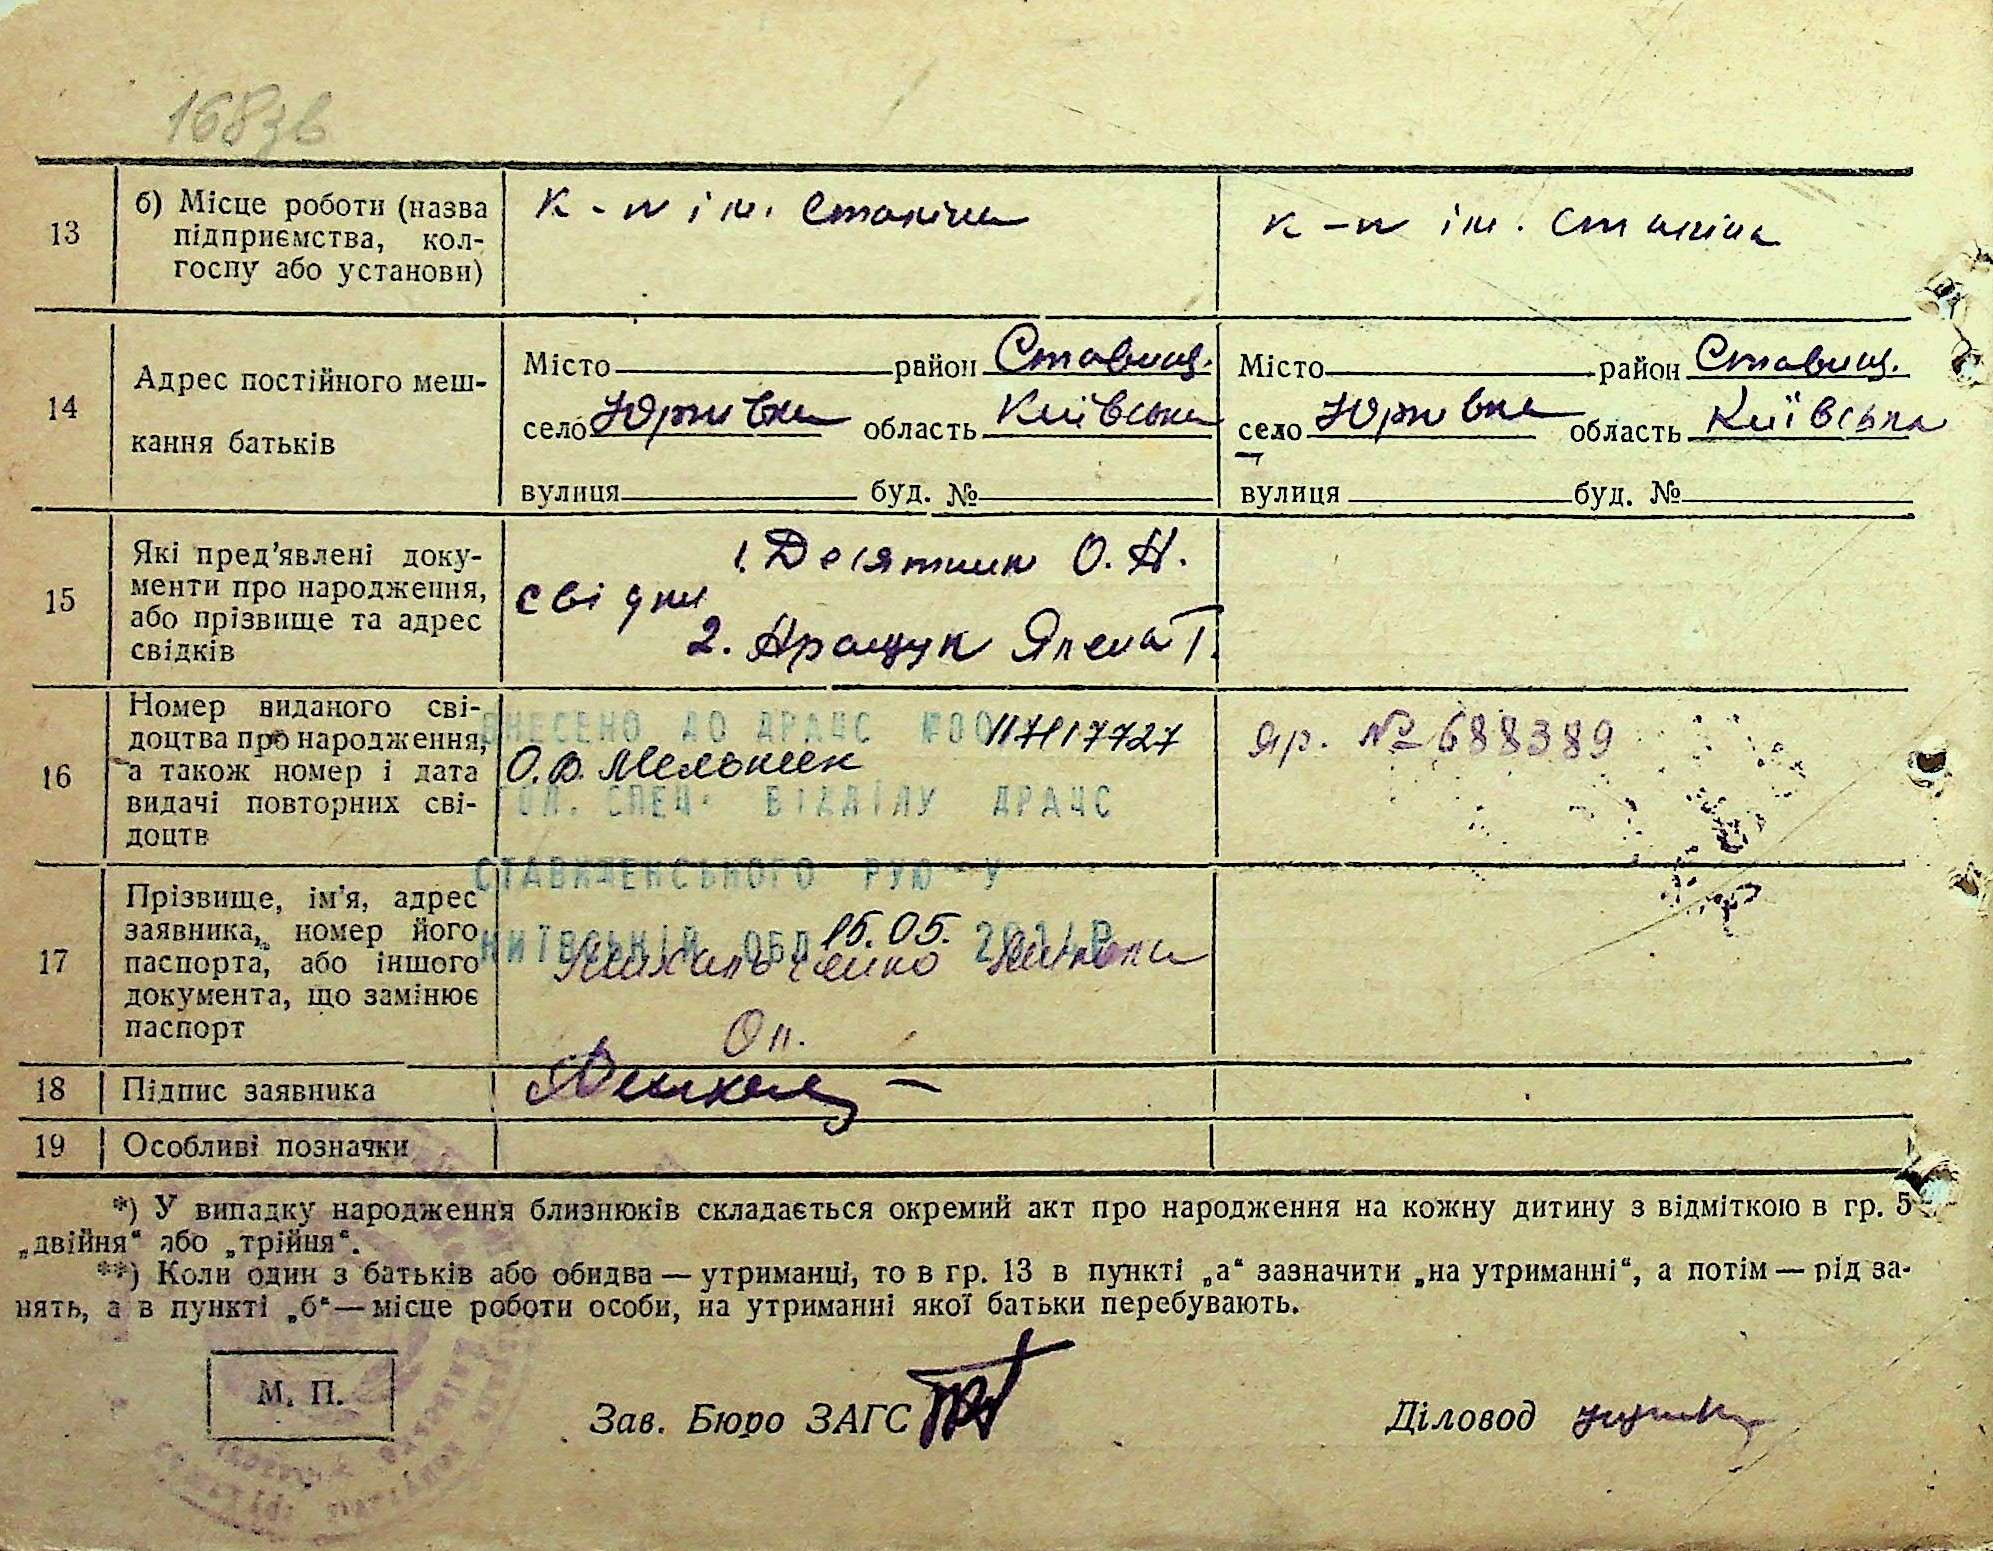 168зв
13
б) Місце роботи (назва
підприємства, кол-
госпу або установи)
к-п ім. Сталіна
к-п ім. Сталіна
14
Адрес постійного меш-
кання батьків
Місто район Ставищ.
село Юрківка область Київська
вулиця буд. №
Місто район Ставищ.
село Юрківка область Київська
вулиця буд. №
15
Які пред'явлені доку-
менти про народження,
або прізвище та адрес
свідків
1. Десятник О. Н.
свідки
2.
16
Номер виданого сві-
доцтва про народження,
а також номер і дата
видачі повторних сві-
доцтв
ВНЕСЕНО ДО ДРАЦС №00117117727
О.В. Мельник
ГОЛ. СПЕЦ. ВІДДІЛУ ДРАЦС
СТАВИЩЕНСЬКОГО РУЮ У
КИЇВСЬКІЙ ОБЛ 15.05.
яр. № 688389
17
Прізвище, ім'я, адрес
заявника, номер його
паспорта, або іншого
документа, що замінює
паспорт
Михальченко
Оп.
18
Підпис заявника
19
Особливі позначки
*) У випадку народження близнюків складається окремий акт про народження на кожну дитину з відміткою в гр. 5
„двійня“ або „трійня“.
**) Коли один з батьків або обидва — утриманці, то в гр. 13 в пункті „а“ зазначити „на утриманні“, а потім — рід за-
нять, а в пункті „б“ — місце роботи особи, на утриманні якої батьки перебувають.
М. П.
Зав. Бюро ЗАГС
Діловод